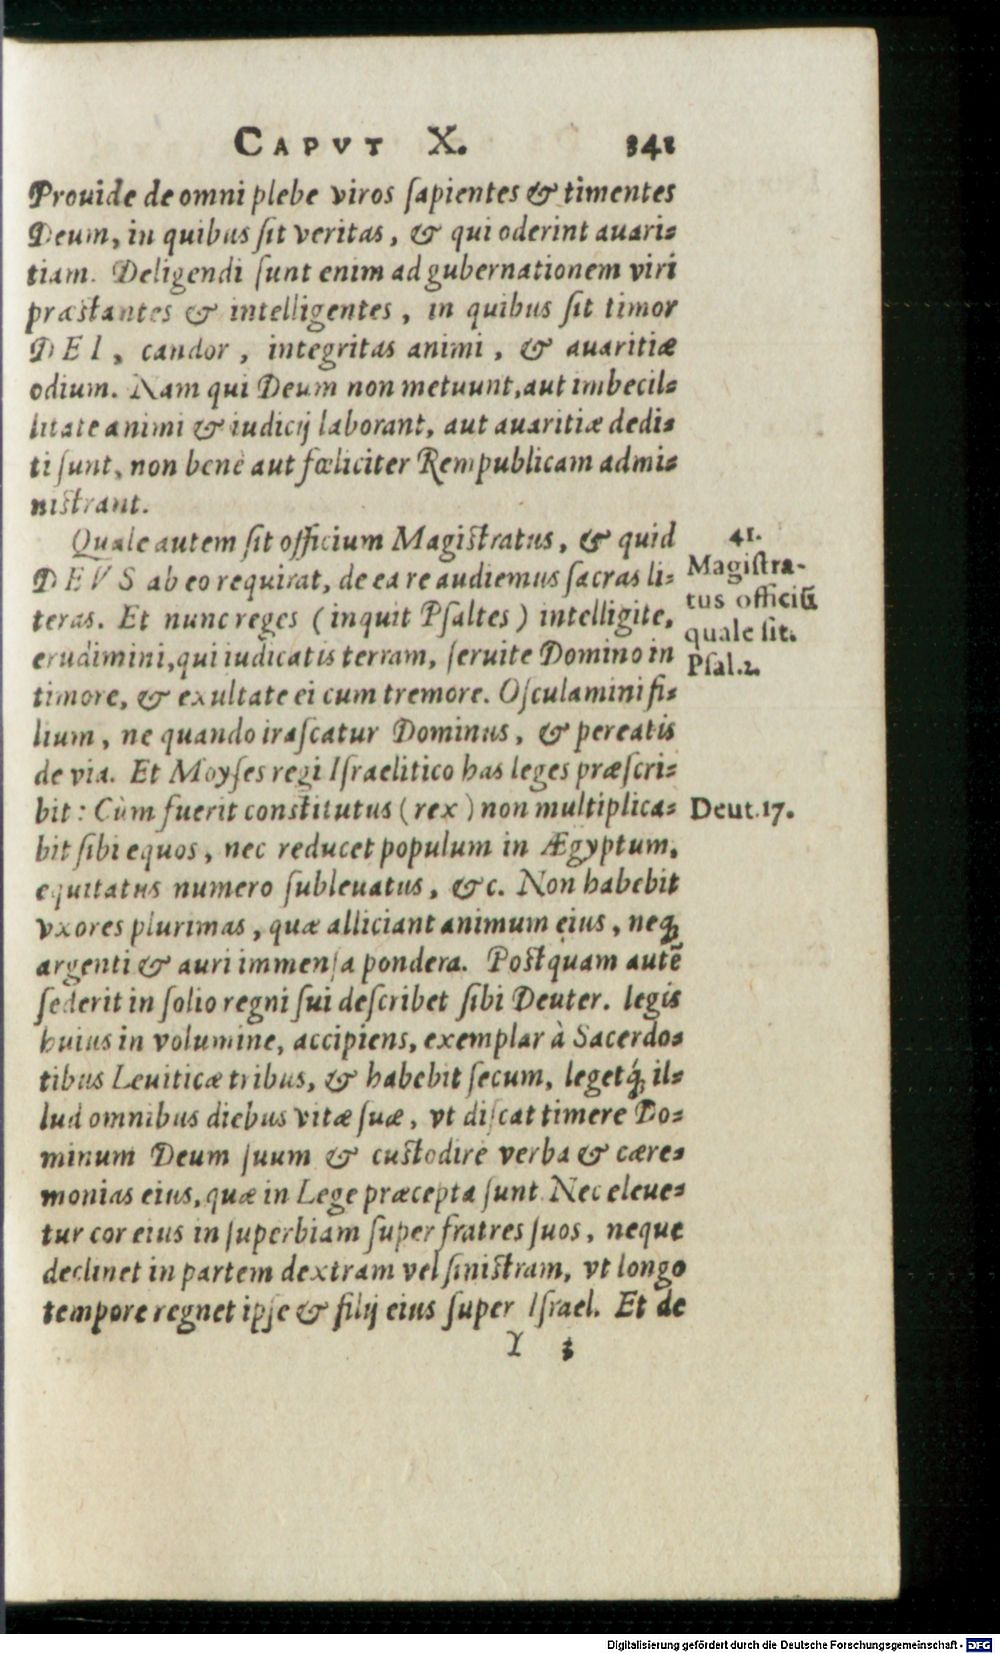 CAPVT X. 341
Prouide de omni plebe viros ſapientes & timentes
Deum, in quibus ſit veritas, & qui oderint auari-
tiam. Deligendi ſunt enim ad gubernationem viri
præstantes & intelligentes, in quibus ſit timor
DEI, candor, integritas animi, & auaritiæ
odium. Nam qui Deum non metuunt, aut imbecil-
litate animi & iudicij laborant, aut auaritiæ dedi-
ti ſunt, non benè aut fœliciter Rempublicam admi-
nistrant.
Quale autem ſit officium Magistratus, & quid
DEVS ab eo requirat, de ea re audiemus ſacras li-
teras. Et nunc reges (inquit Pſaltes) intelligite,
erudimini, qui iudicatis terram, ſeruite Domino in
timore, & exultate ei cum tremore. Oſculamini fi-
lium, ne quando iraſcatur Dominus, & pereatis
de via. Et Moyſes regi Iſraelitico has leges præſcri-
bit: Cùm fuerit constitutus (rex) non multiplica-
bit ſibi equos, nec reducet populum in Ægyptum,
equitatus numero ſubleuatus, &c. Non habebit
vxores plurimas, quæ alliciant animum eius, neq;
argenti & auri immenſa pondera. Postquam autẽ
ſederit in ſolio regni ſui deſcribet ſibi Deuter. legis
huius in volumine, accipiens, exemplar à Sacerdo-
tibus Leuiticæ tribus, & habebit ſecum, legetq́; il-
lud omnibus diebus vitæ ſuæ, vt diſcat timere Do-
minum Deum ſuum & custodire verba & cære-
monias eius, quæ in Lege præcepta ſunt. Nec eleue-
tur cor eius in ſuperbiam ſuper fratres ſuos, neque
declinet in partem dextram vel ſinistram, vt longo
tempore regnet ipſe & filij eius ſuper Iſrael. Et de
Y 3
41.
Magiſtra-
tus officiũ
quale ſit.
Pſal.2.
Deut.17.
Digitalisierung gefördert durch die Deutsche Forschungsgemeinschaft - DFG